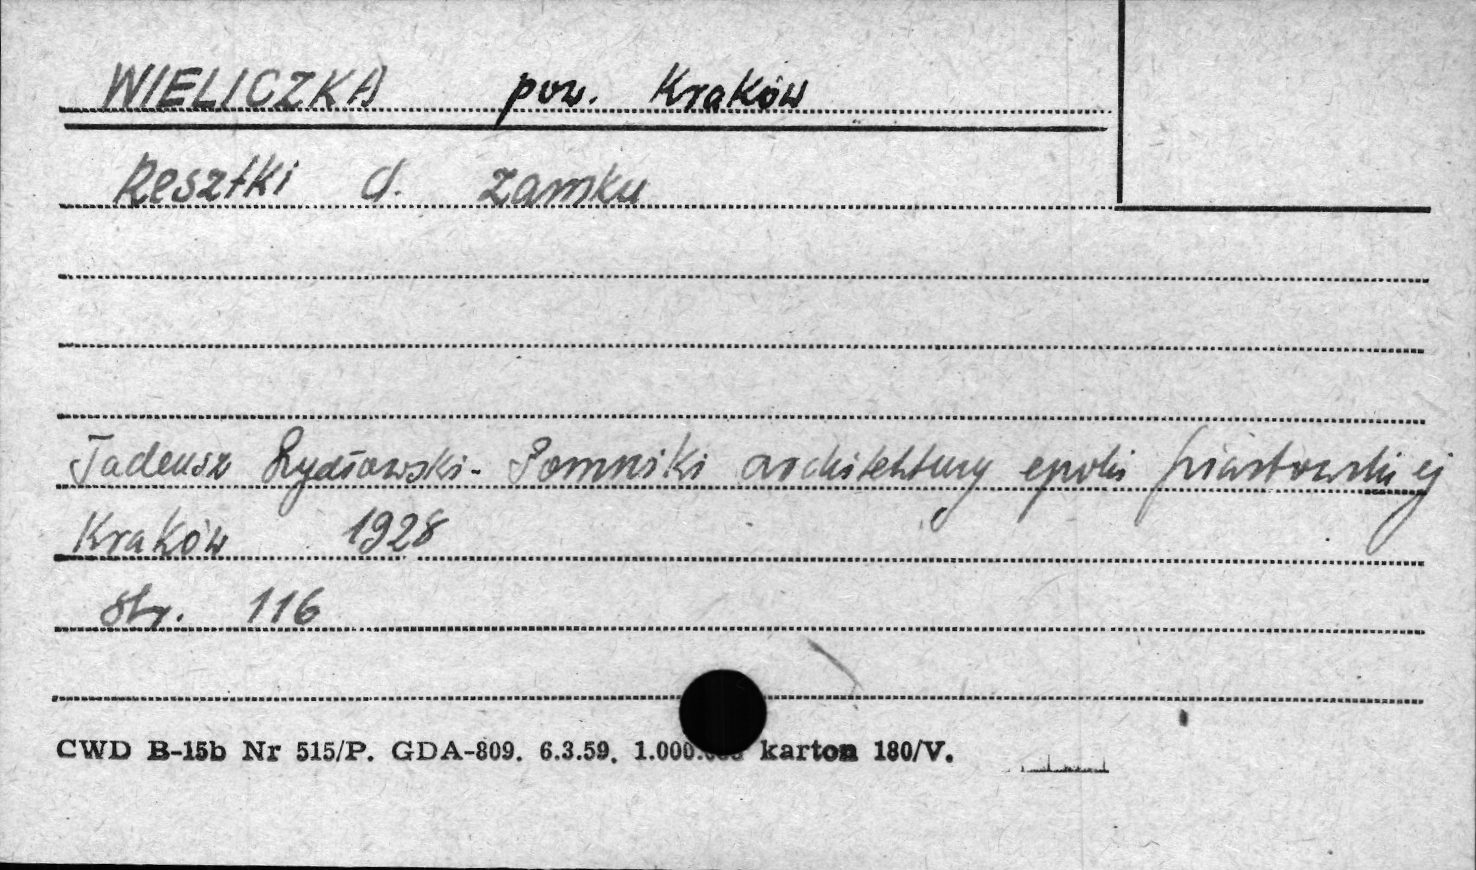 WIELICZKA pow. Kraków
Resztki d. zamku
Tadeusz Szydłowski - Pomniki architektury epoki piastowskiej
Kraków 1928
str. 116
CWD B-15b Nr 515/P. GDA-809. 6.3.59. 1.000.000 karton 180/V.